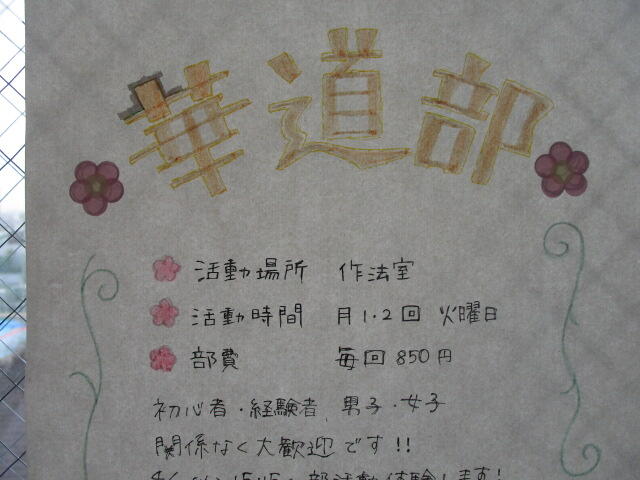 華道部
活動場所 作法室
活動時間 月1.2回 火曜日
部費 毎回850円
初心者・経験者、男子・女子
関係なく大歓迎です!!
部活動体験します!